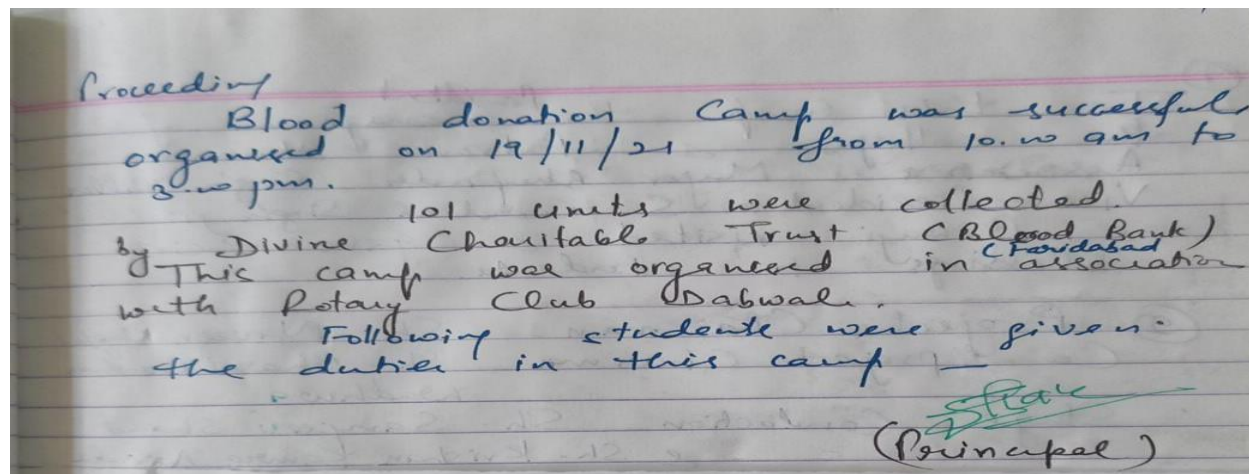 Proceeding
Blood donation Camp was successful
organised on 19/11/21 from 10.00 am to
3.00 pm.
101 units were collected.
by Divine Charitable Trust (Blood Bank)
(Faridabad
This camp was organised in association
with Rotary Club Dabwali.
Following students were given
the duties in this camp —
(Principal)